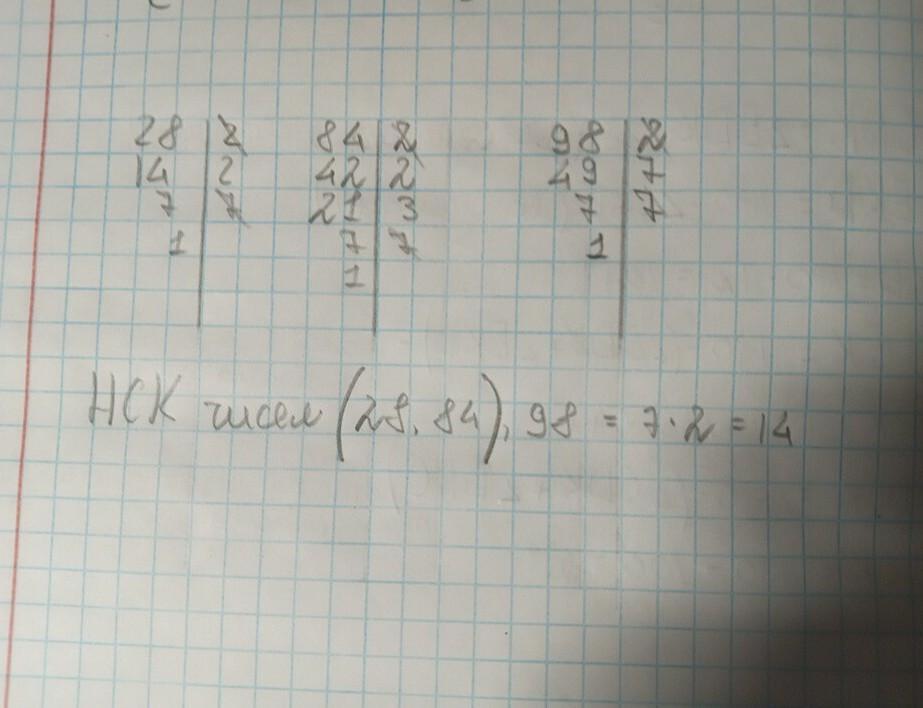 28 | 2 84 | 2 98 | 2
14 | 2 42 | 2 49 | 7
7 | 7 21 | 3 7 | 7
1 | 7 | 7 1 |
1 |
НСК чисел (28, 84), 98 = 7·2 = 14